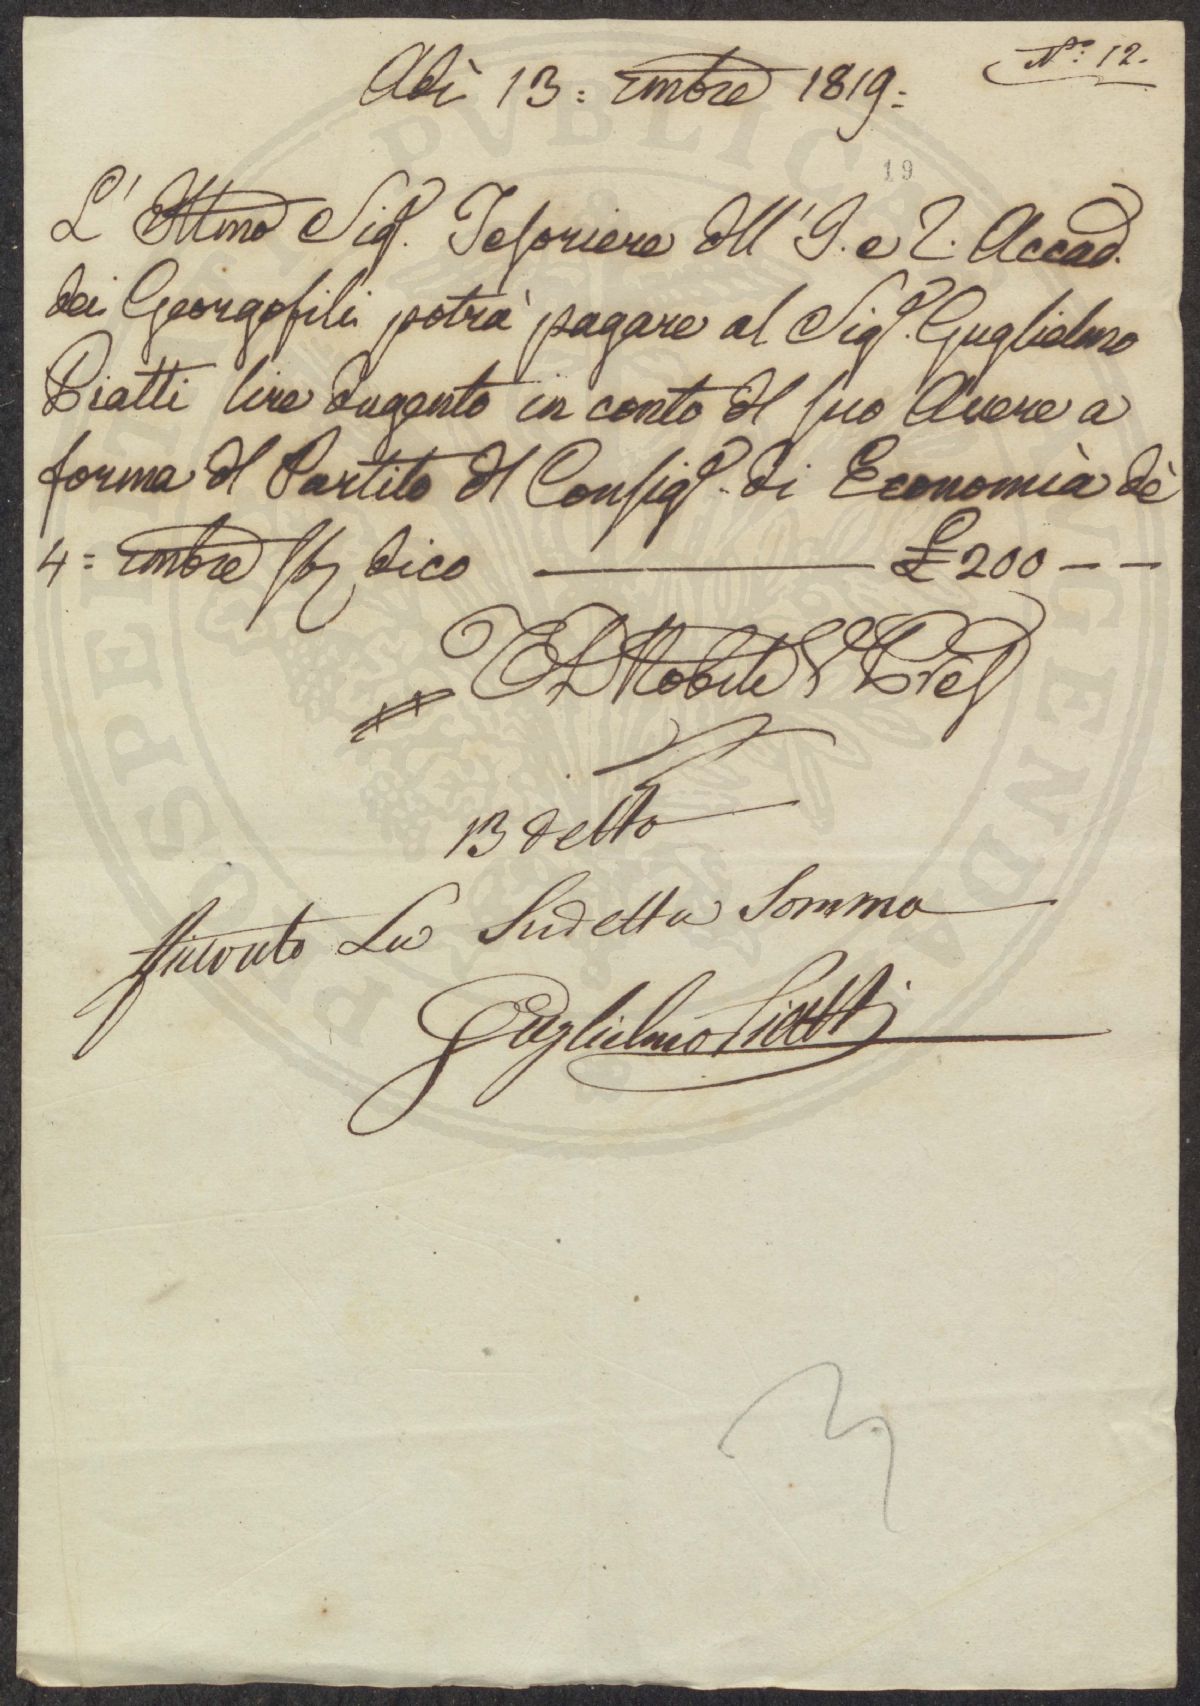 N.° 12.
Adì 13 = Xmbre 1819 =
19
L'Ill.mo Sig.r Tesoriere dll' I. e R. Accad.
dei Georgofili potrà pagare al Sig.r Guglielmo
Piatti lire dugento in conto dl suo Avere a
forma dl Partito dl Consig.o di Economia dè
4 = Xmbre dico £ 200 — —
Nobili V. Pres
13 detto
Ricevuto La Sudetta Somma
Guglielmo Piatti
PROSPERITATI PVBLICAE AVGENDAE